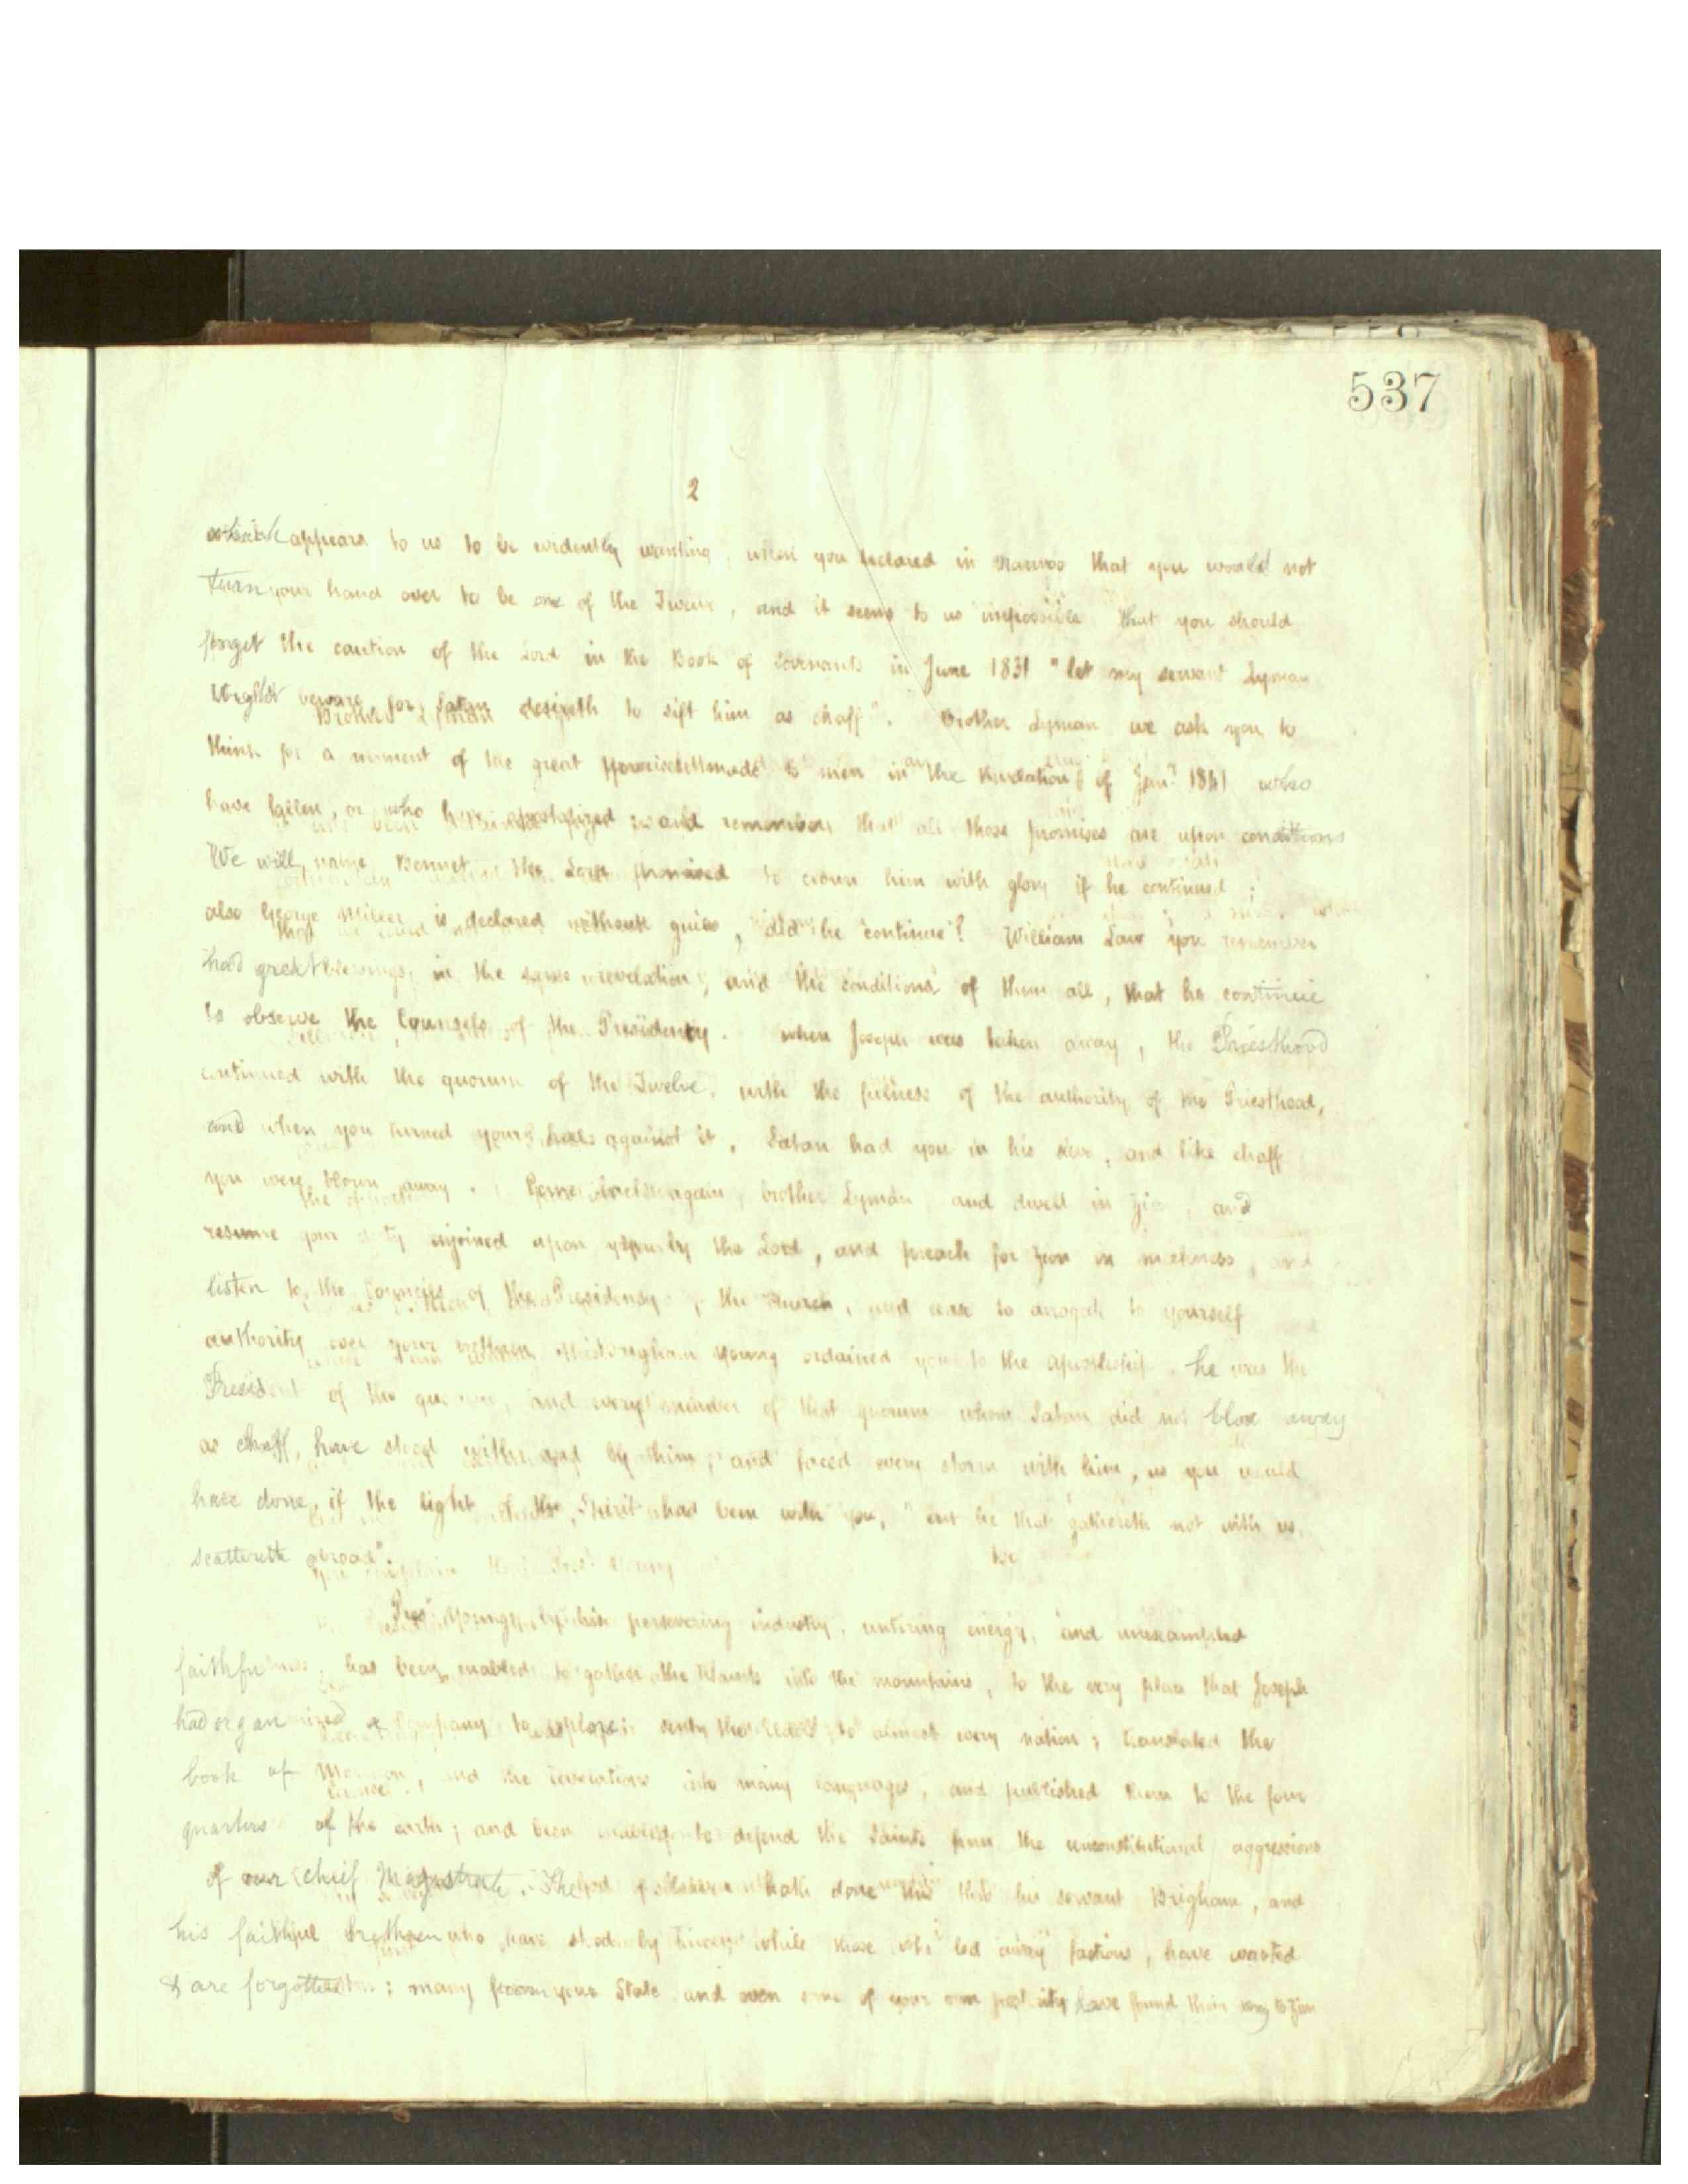 537
2
which appears to us to be evidently wanting, when you declared in Nauvoo that you would not
turn your hand over to be one of the Twelve, and it seems to us impossible that you should
forget the caution of the Lord in the Book of Covenants in June 1831 "let my servant Lyman
Wight beware for Satan desireth to sift him as chaff". Brother Lyman we ask you to
think for a moment of the great made to men in the Revelation of Jany 1841 who
have fallen, or who have apostatized and remember that all those promises are upon conditions
We will name Bennet, the Lord promised to crown him with glory if he continued;
also George Miller, is declared without guile, did he continue? William Law you remember
had great blessings, in the same revelation, and the conditions of them all, that he continue
to observe the Counsels of the Presidency. when Joseph was taken away, the Priesthood
continued with the quorum of the Twelve, with the fulness of the authority of the Priesthood,
and when you turned your heels against it, Satan had you in his sieve, and like chaff
you were blown away. Come back again, brother Lyman, and dwell in Zion, and
resume your duty enjoined upon you by the Lord, and preach for Zion in meekness, and
listen to the Councils of the Presidency of the Church, and cease to arrogate to yourself
authority over your brethren, Brigham Young ordained you to the apostleship. he was the
President of the quorum, and every member of that quorum whom Satan did not blow away
as chaff, have stood with and by him, and faced every storm with him, as you would
have done, if the light of the Spirit had been with you, "but he that gathereth not with us
scattereth abroad".
Prest Young, by his persevering industry, untiring energy, and unexampled
faithfulness, has been enabled to gather the Saints into the mountains, to the very place that Joseph
had organized a Company to explore; sent the Elders to almost every nation; translated the
book of Mormon, and the revelations into many languages, and published them to the four
quarters of the earth; and been enabled to defend the Saints from the unconstitutional aggressions
of our chief Magistrate. The God of hath done this thro his servant Brigham, and
his faithful brethren who have stood by him, while those who led away factions, have wasted
& are forgotten; many from your State and even some of your own posterity have found their way to Zion